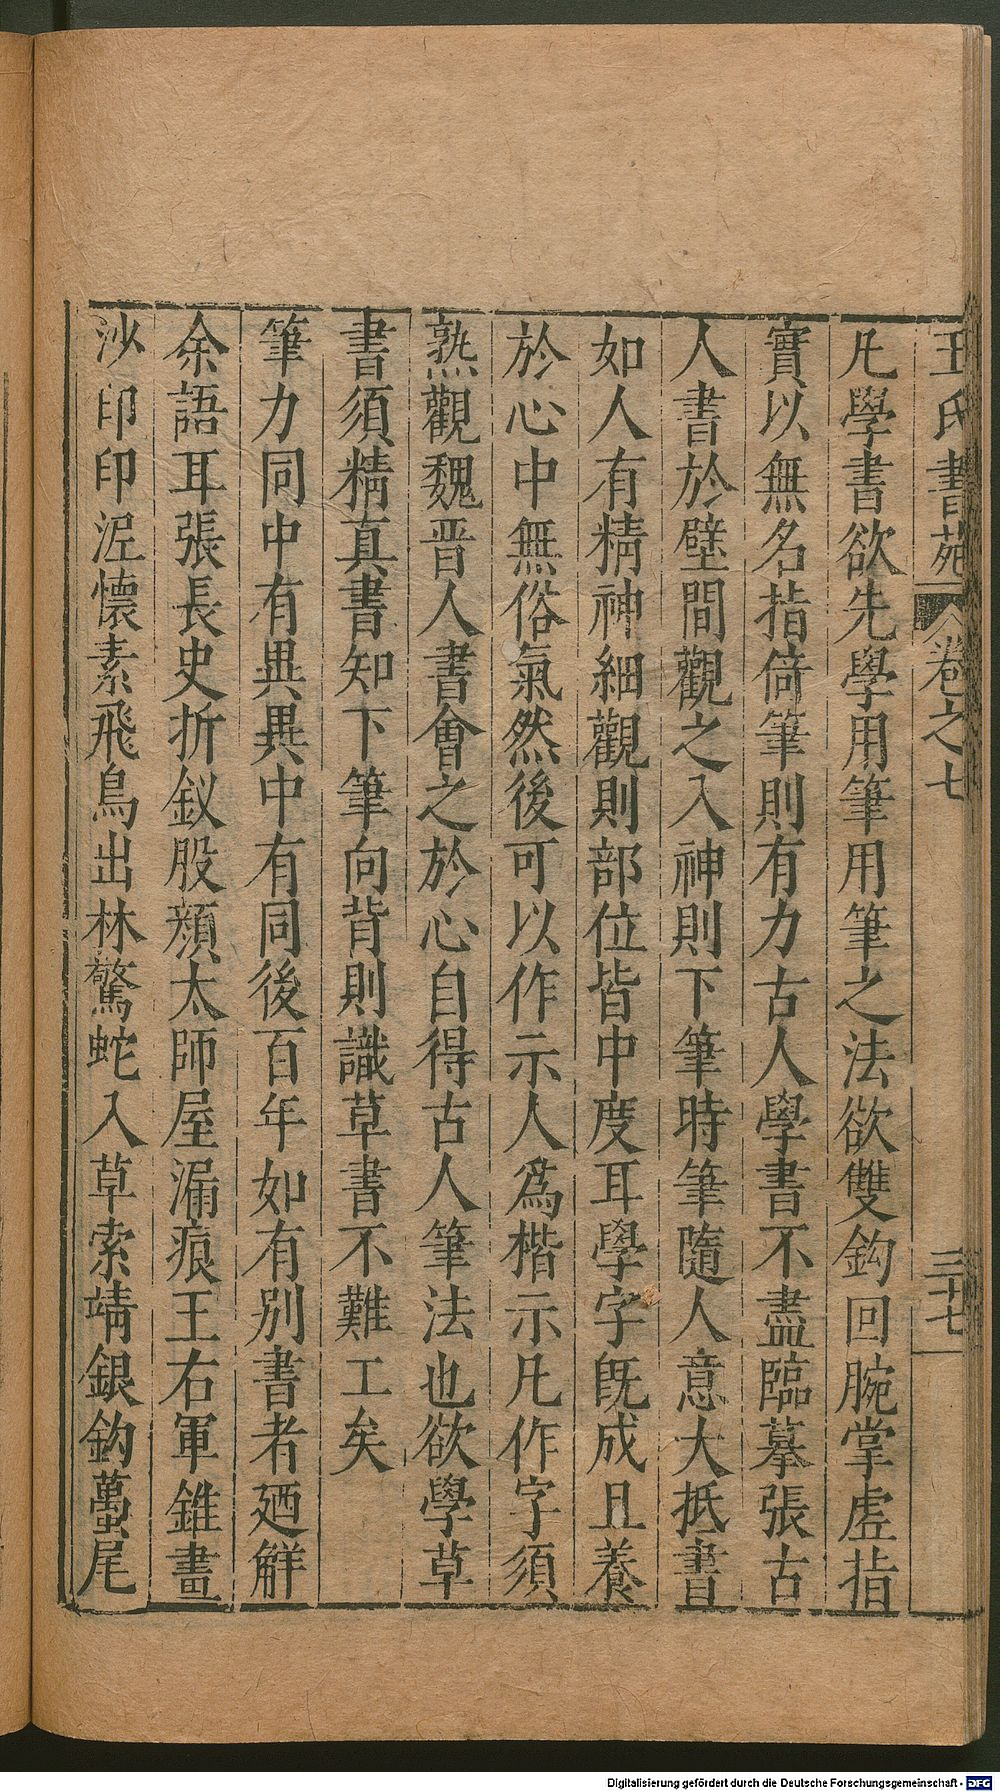 王氏書苑 卷之七 三十七
凡學書欲先學用筆用筆之法欲雙鈎回腕掌虗指
實以無名指倚筆則有力古人學書不盡臨摹張古
人書於壁間觀之入神則下筆時筆隨人意大抵書
如人有精神細觀則部位皆中度耳學字旣成且養
於心中無俗氣然後可以作示人爲楷示凡作字須
熟觀魏晋人書會之於心自得古人筆法也欲學草
書須精真書知下筆向背則識草書不難工矣
筆力同中有異異中有同後百年如有别書者廼觧
余語耳張長史折釵股顔太師屋漏痕王右軍錐畫
沙印印泥懷素飛鳥出林驚蛇入草索靖銀鈎蠆尾
Digitalisierung gefördert durch die Deutsche Forschungsgemeinschaft - DFG